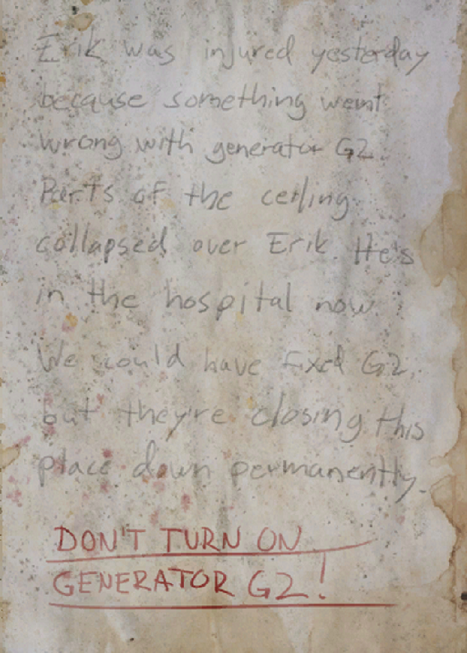 Erik was injured yesterday
because something went
wrong with generator G2.
Parts of the ceiling
collapsed over Erik. He's
in the hospital now.
We could have fixed G2,
but they're closing this
place down permanently.
DON'T TURN ON
GENERATOR G2!